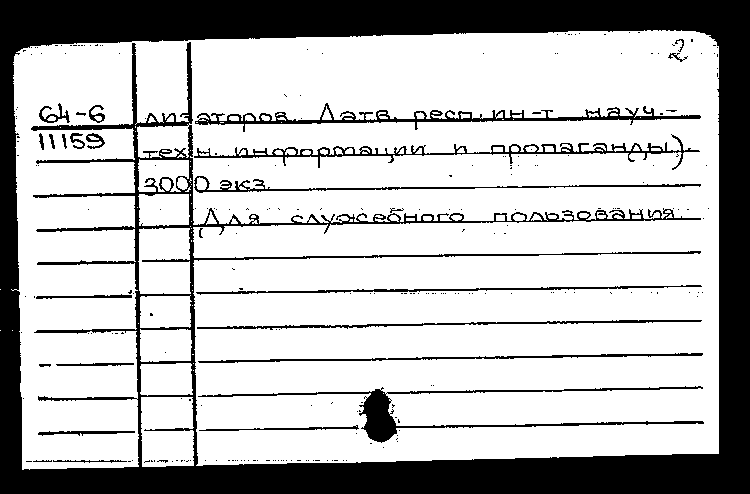 2
64-6 лизаторов. Латв. респ. ин-т науч.-
11159 техн. информации и пропаганды).
3000 экз.
Для служебного пользования.